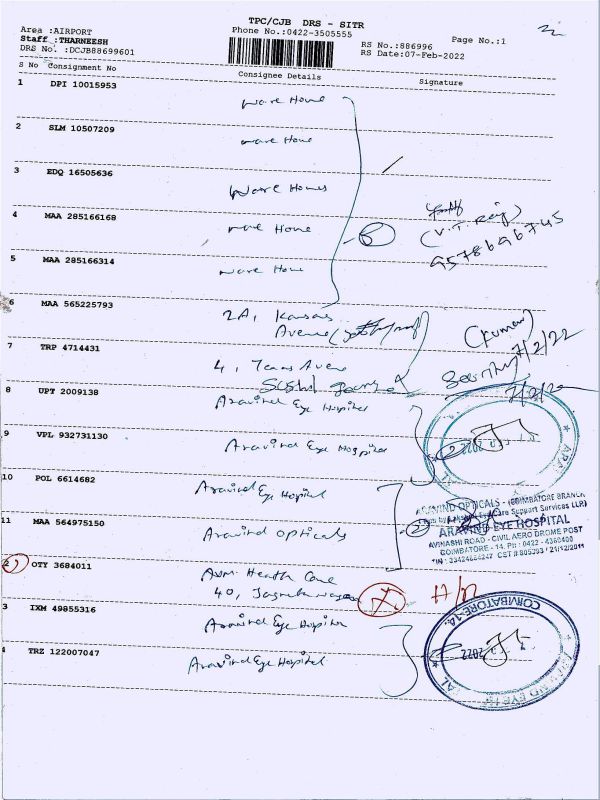 TPC/CJB DRS - SITR
Area :AIRPORT
Phone No.:0422-3505555
Page No.:1
Staff :THARNEESH
RS No.:886996
DRS No. :DCJB88699601
RS Date:07-Feb-2022
S No Consignment No
Consignee Details
Signature
1 DPI 10015953
ware House
2 SLM 10507209
ware House
3 EDQ 16505636
ware House
4 MAA 285166168
ware House
(V.T. Raj)
9578696745
5 MAA 285166314
ware House
6 MAA 565225793
2A, Kansas
Avenue
(Kumar)
7/2/22
7 TRP 4714431
4, Texas Avene
Security
7/2/22
8 UPT 2009138
Aravind Eye Hospital
9 VPL 932731130
Aravind Eye Hospital
10 POL 6614682
Aravind Eye Hospital
ARAVIND OPTICALS - (COIMBATORE BRANCH
Care Support Services LLP)
11 MAA 564975150
Aravind Opticals
2
ARAVIND EYE HOSPITAL
AVINASHI ROAD - CIVIL AERO DROME POST
COIMBATORE - 14, PH : 0422 - 4360400
2 OTY 3684011
Avm Health Care
40,
3 IXM 49855316
Aravind Eye Hospital
COIMBATORE-14.
4 TRZ 122007047
Aravind Eye Hospital